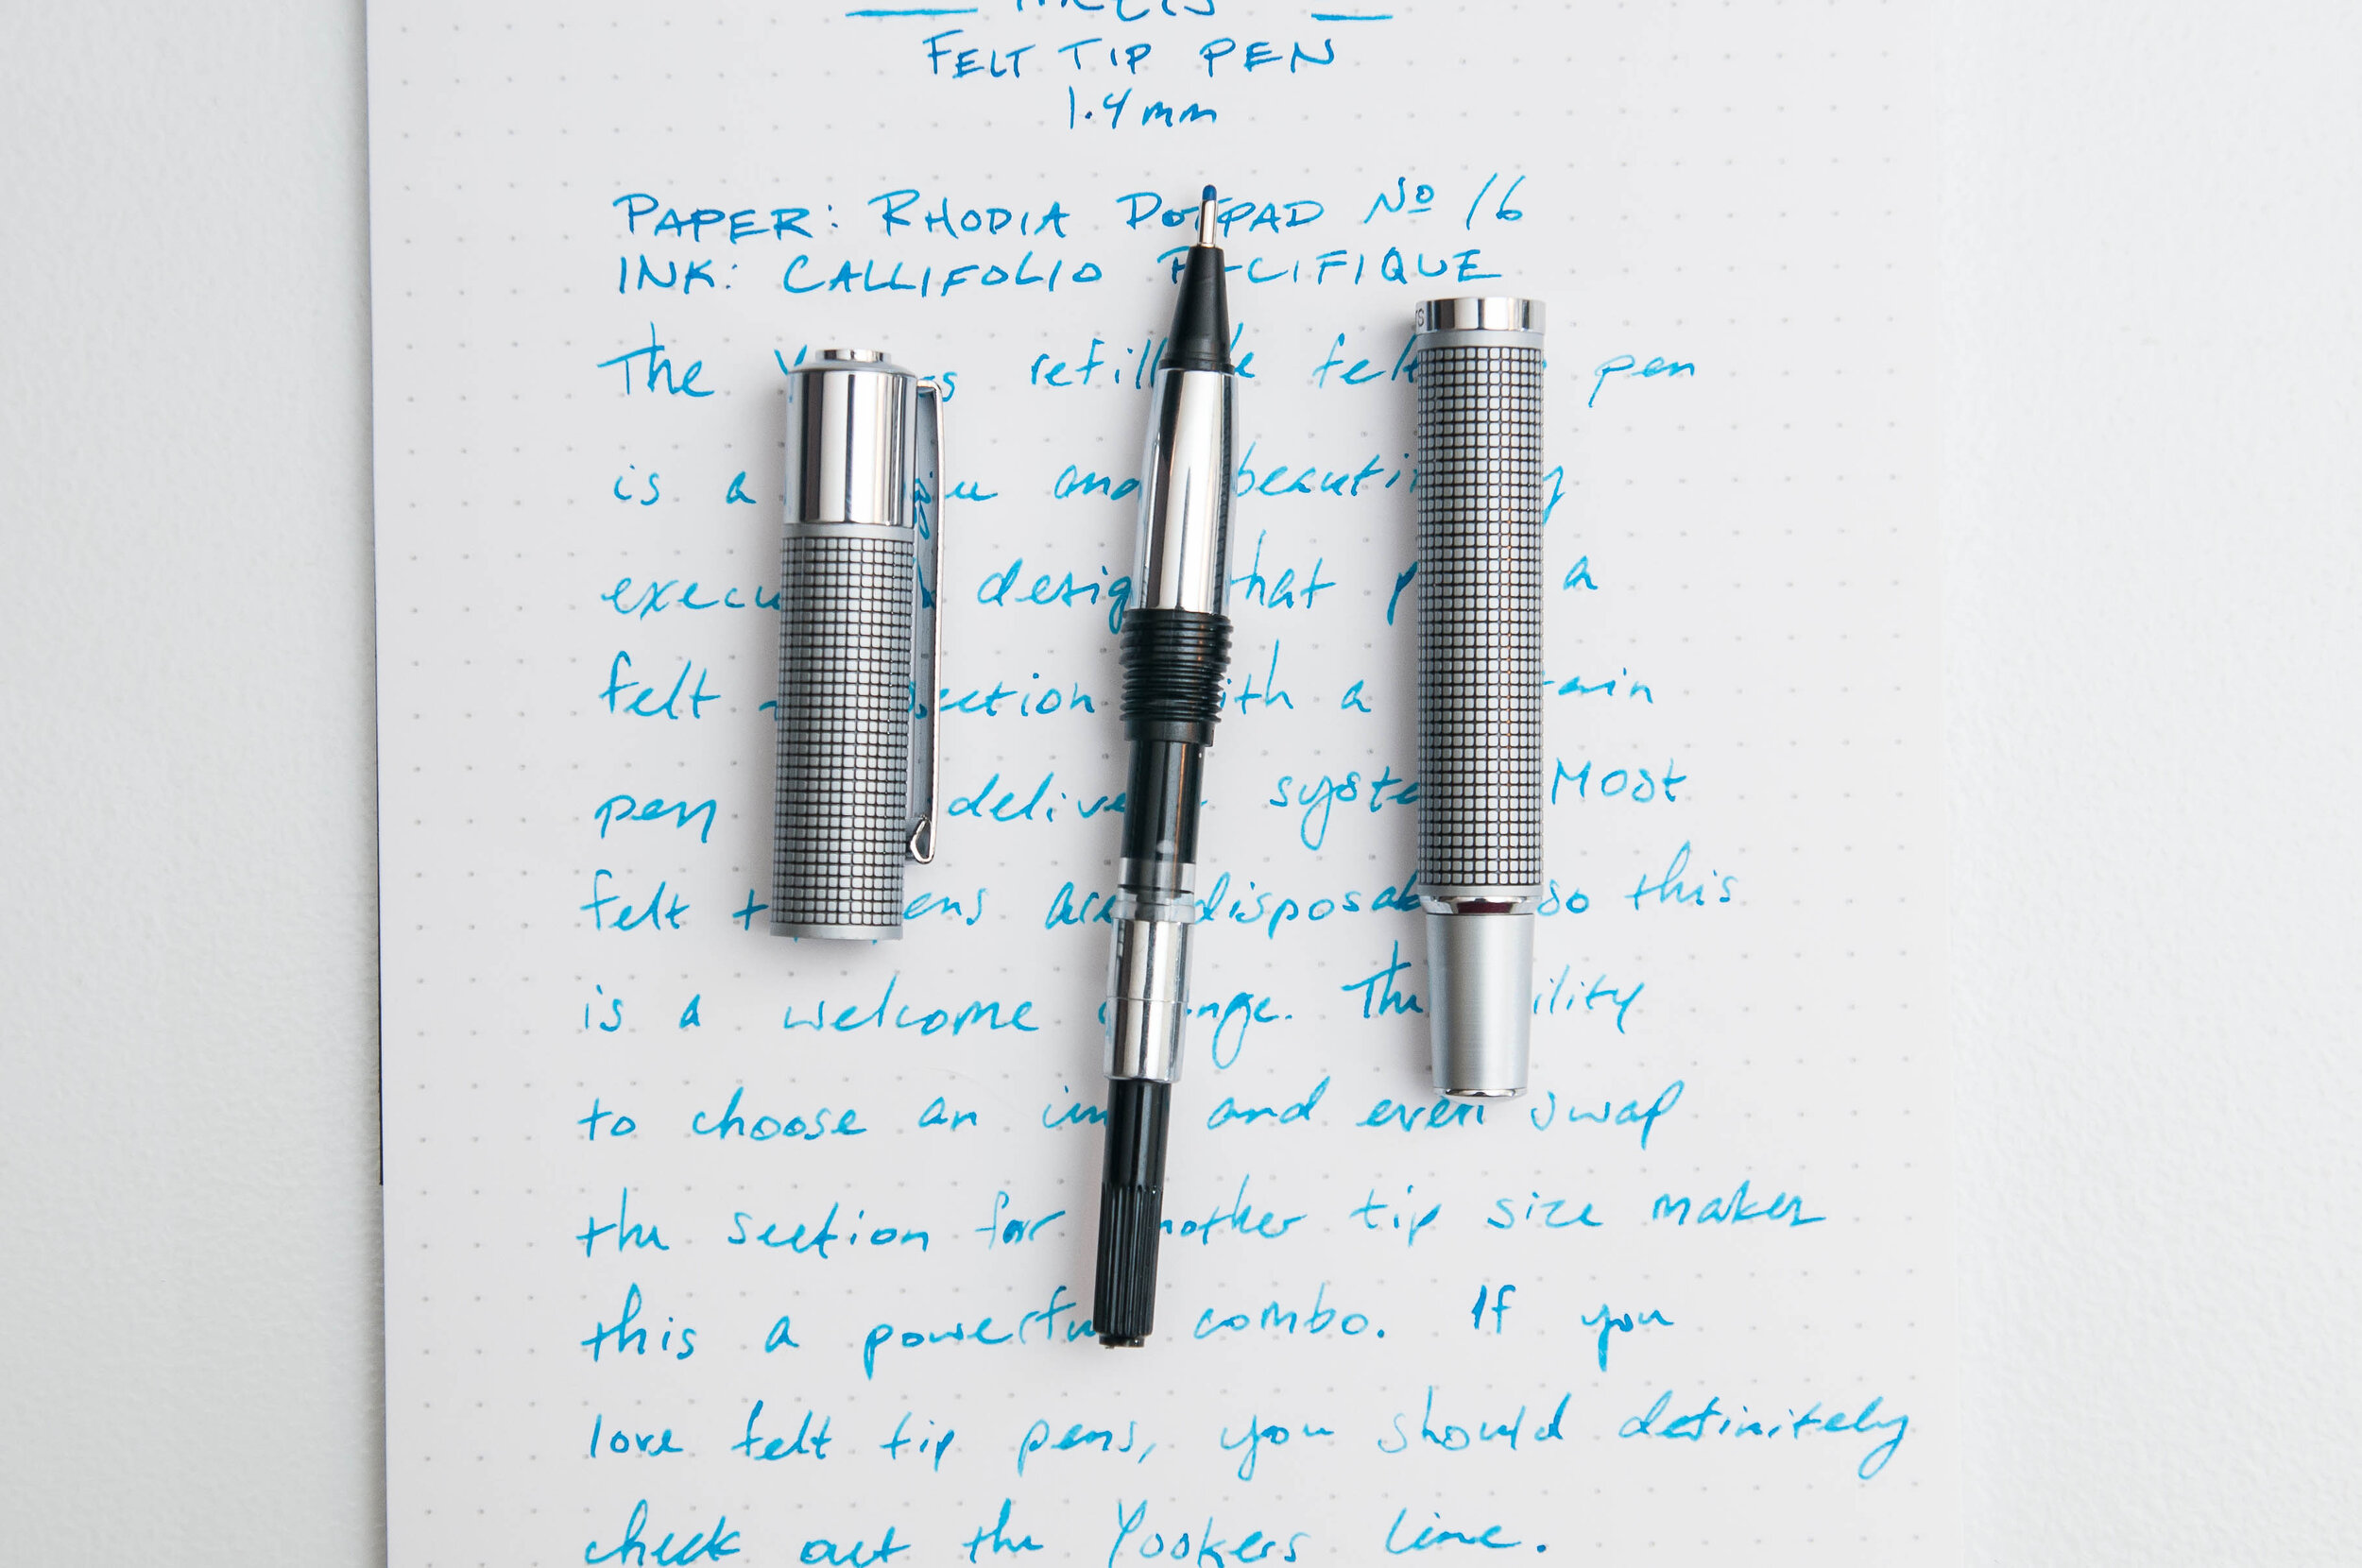 FELT TIP PEN
1.4mm
PAPER: RHODIA DOTPAD Nº 16
INK: CALLIFOLIO PACIFIQUE
The refillable felt pen
is a and beautifully
executed design that a
felt section with a
pen delivery system Most
felt pens are disposable so this
is a welcome change. The ability
to choose an ink and even swap
the section for another tip size makes
this a powerful combo. If you
love felt tip pens, you should definitely
check out the Yookers line.